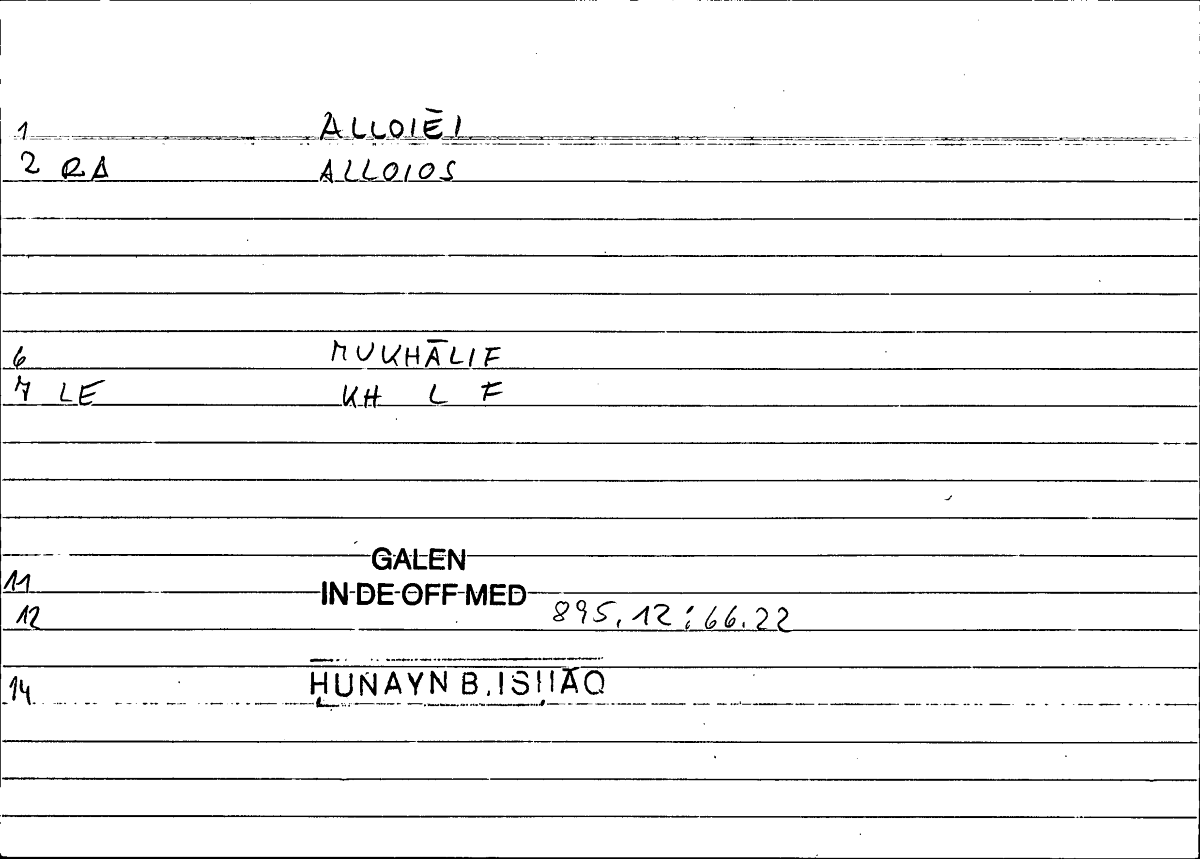 1 ALLOIĒI
2 RA ALLOIOS
6 MUKHĀLIF
7 LE KH L F
GALEN
11 IN DE OFF MED
12 895.12:66.22
14 ḤUNAYN B.ISḤĀQ